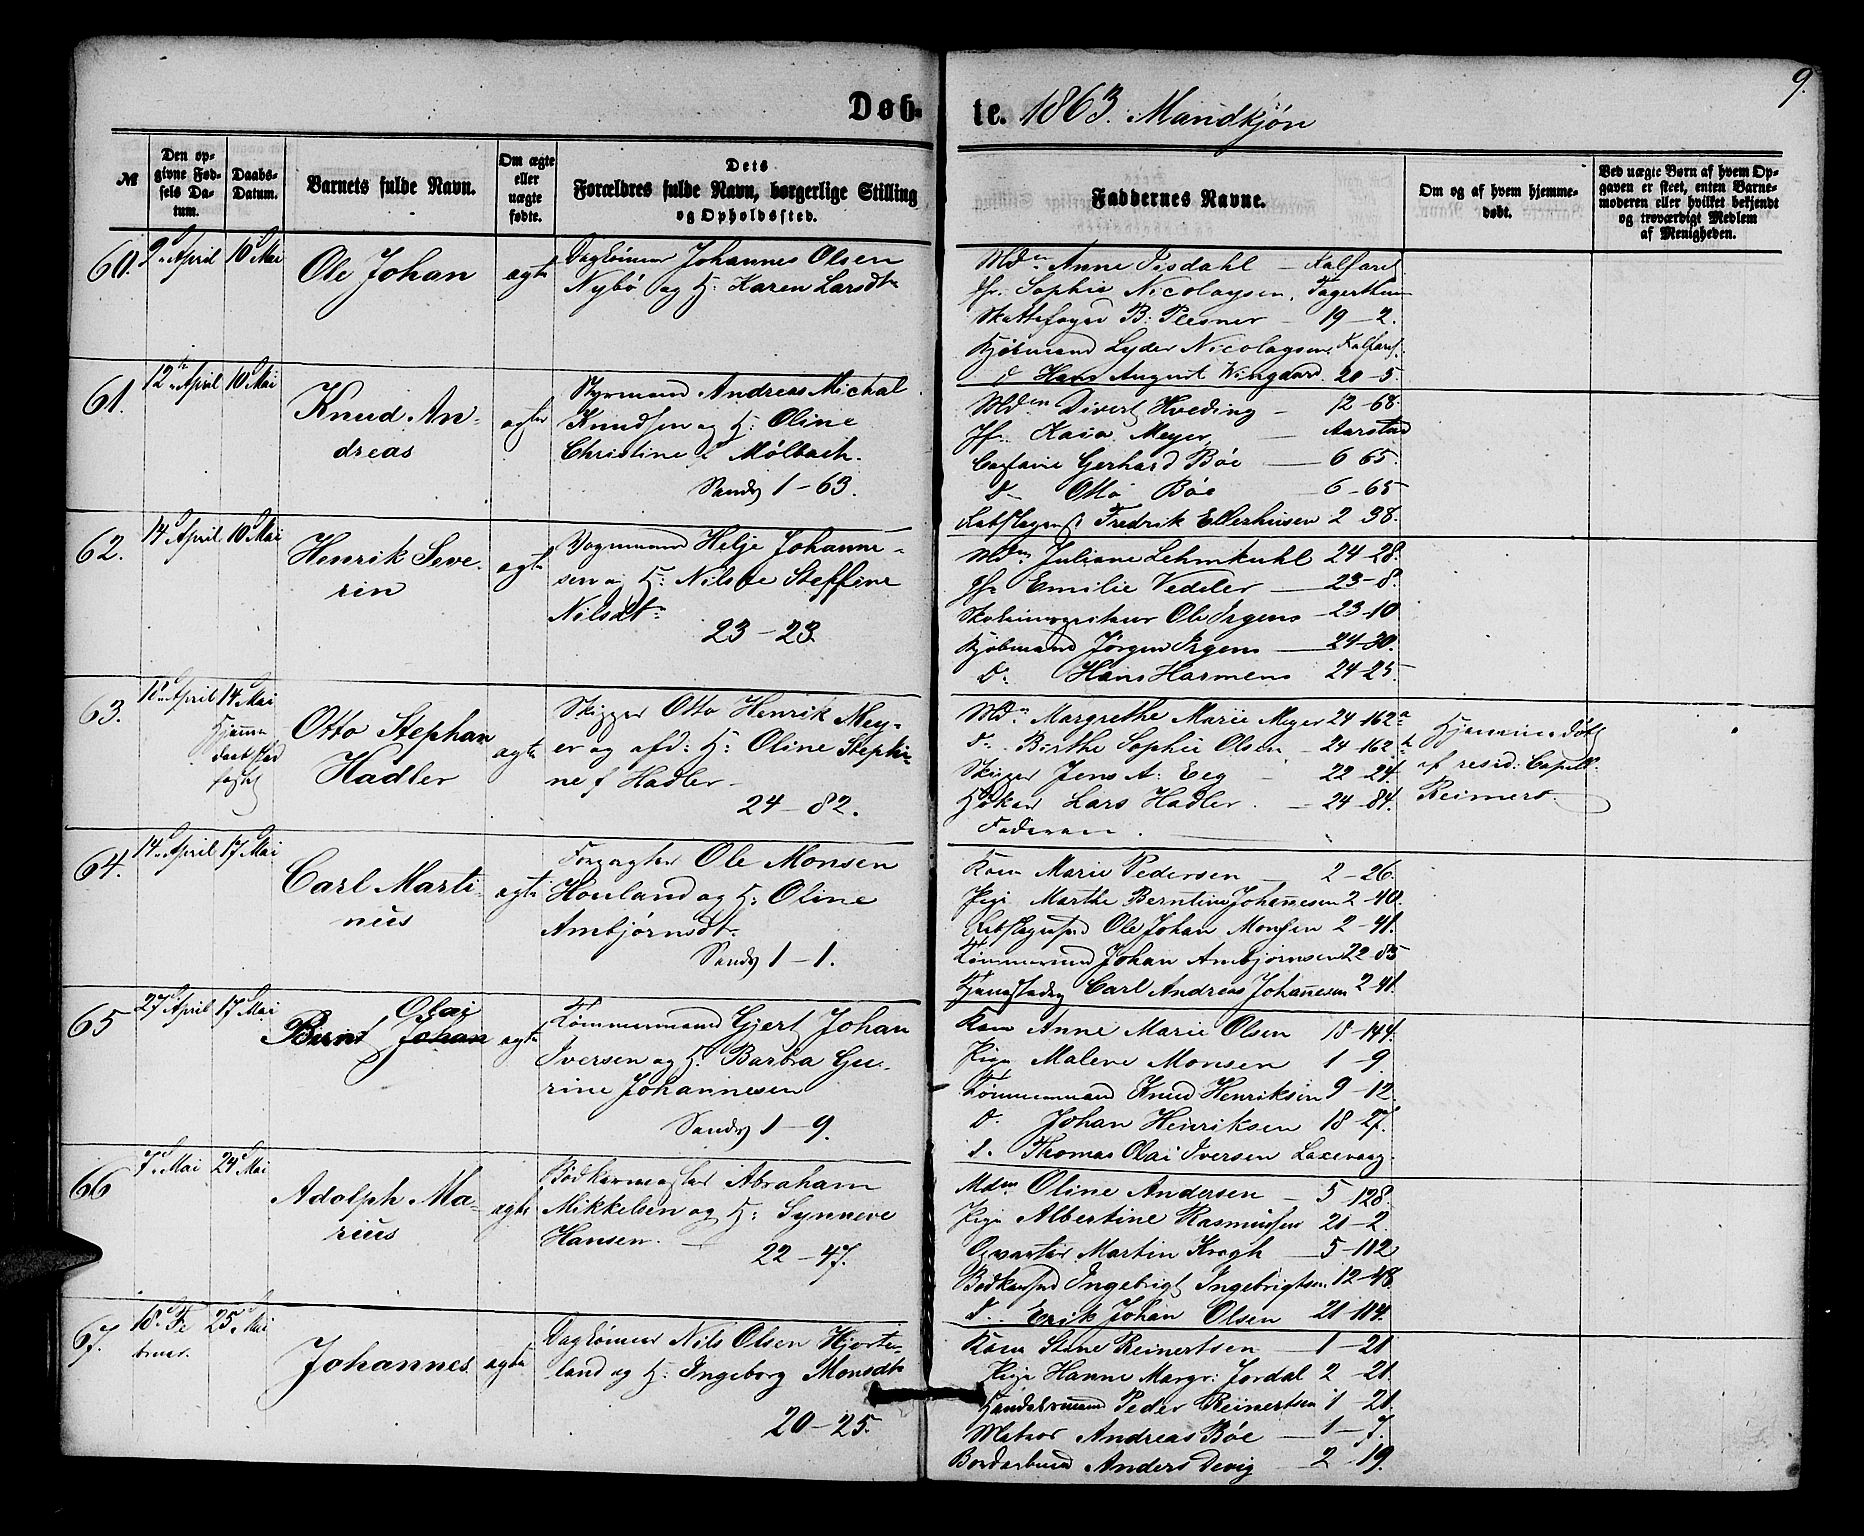 9.
Døb- te. 1863. Mandkjön
№
Den opgivne Fødsels Datum.
Daabs-Datum.
Barnets fulde Navn.
Om ægte eller uægte fødte.
Dets Forældres fulde Navn, borgerlige Stilling og Opholdssted.
Faddernes Navne.
Om og af hvem hjemmedøbt.
Ved uægte Børn af hvem Opgaven er skeet, enten Barnemoderen eller hvilket bekjendt og troværdigt Medlem af Menigheden.
60. 9d April 10d Mai
Ole Johan
ægte
Daglönner Johannes Olsen
Nybö og H: Karen Larsdtr
Mdm Anne Kalfaret
Jfr. Sophie Nicolaysen,
Skattefoged B: Plesner 19-2.
Kjöbmand Lyder Nicolaysen, Kalfaret
d Hans August Wingaard. 20-5.
61. 12te April 10d Mai
Knud An-
dreas
ægte
Styrmand Andreas Michal
Knudsen og H: Oline
Christine f Mølbach.
Sandv 1-63.
Mdm Divert Hveding 12-68.
Jfr. Kaia Meyer, Aarstad
Captaine Gerhard Böe 6-65.
D Otto Böe 6-65
Fredrik Ellerhusen 2-38.
62. 14d April 10d Mai
Henrik Seve-
rin
ægte
Vognmand Helje Johanne-
sen og H: Nilsine Steffine
Nilsdtr
23-23.
Mdm Juliane Lehmkuhl 24-28.
Jfr Emilie Vedeler 23-8.
Ole Irgens 23-10
Kjöbmand Jörgen Irgens 24-30.
D: Hans Harmens 24-25.
63. April 14d Mai
Hjemme
daab stad
fæstet
Otto Stephan
Hadler
ægte
Skipper Otto Henrik Mey-
er og afd: H: Oline Stephi-
ne f Hadler
24-82.
Mdm Margrethe Marie Meyer 24-162a
D. Birthe Sophie Olsen 24-162b
Skipper Jens A: Eeg 22-24.
Höker Lars Hadler. 24-84.
Faderen.
Hjemmedöbt
af resid: Capell:
Reimers.
64. 14d April 17d Mai
Carl Marti-
nus
ægte
Forpagter Ole Monsen
Houland og H: Oline
Ambjörnsdtr
Sandv 1-1.
Kone Marie Pedersen 2-26.
Pige Marthe Berntine Johannesen 2-40.
Ole Johan Monsen 2-41.
Tömmermand Johan Ambjörnsen 22-85
Carl Andreas Johannesen 2-41.
65 27d April 17d Mai
Olai
Bernt Johan
ægte
Tömmermand Gjert Johan
Iversen og H: Barbra Gu-
rine Johannesen
Sandv 1-9.
Kone Anne Marie Olsen 18-144.
Pige Malene Monsen 1-9.
Tömmermand Knud Henriksen 9-12.
D. Johan Henriksen 18-27.
d. Thomas Olai Iversen Laxevaag.
66 7d Mai 24d Mai
Adolph Ma-
rius
ægte
Bödkermester Abraham
Mikkelsen og H: Synneve
Hansen.
22-47.
Mdm Oline Andersen 5-128.
Pige Albertine Rasmussen 21-2.
Martin Krogh 5-112
Bödkersvd Ingebrigt Ingebrigtsen 12-48.
D. Erik Johan Olsen 21-114.
67. 18d Fe-
bruar. 25d Mai
Johannes
ægte
Daglönner Nils Olsen Hjorte-
land og H: Ingeborg Monsdtr
20-25.
Kone Stine Reinertsen 1-21
Pige Hanne Margr: Jordal 2-21.
Handelsmand Peder Reinertsen 1-21.
Matros Andreas Böe 1-7.
Anders Devig 2-19.